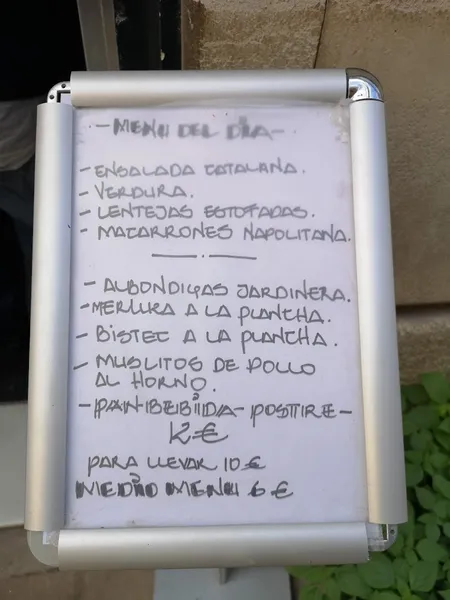 - MENU DEL DIA -
- ENSALADA CATALANA.
- VERDURA.
- LENTEJAS ESTOFADAS.
- MACARRONES NAPOLITANA.
- ALBONDIGAS JARDINERA.
- MERLUZA A LA PLANCHA.
- BISTEC A LA PLANCHA.
- MUSLITOS DE POLLO
AL HORNO.
- PAN-BEBIDA- POSTRE -
12€
PARA LLEVAR 10€
MEDIO MENU 6€